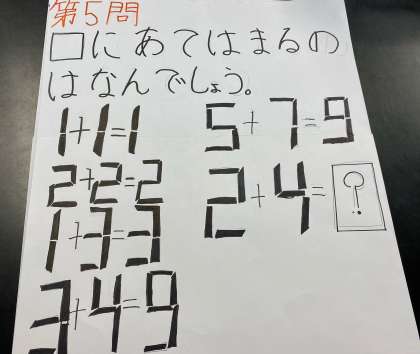 第5問
□にあてはまるの
はなんでしょう。
1+1=1
2+2=2
1+3=3
3+4=9
5+7=9
2+4=?